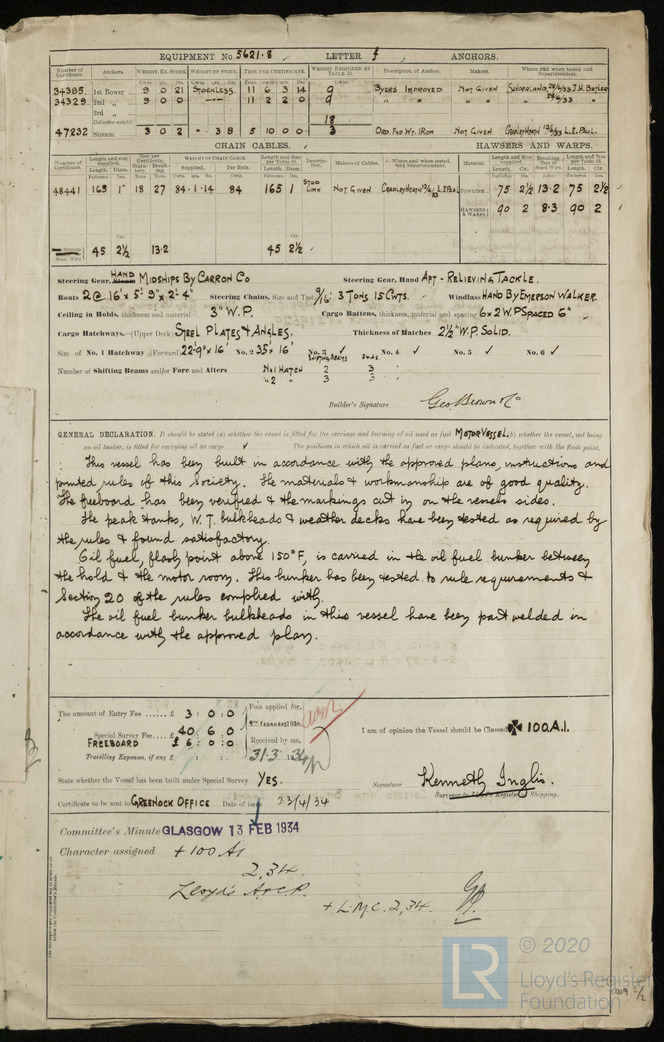 EQUIPMENT No 5621.8 LETTER f ANCHORS.
Number of Certificate. Anchors. WEIGHT, EX. STOCK. WEIGHT OF STOCK. TEST, PER CERTIFICATE. WEIGHT REQUIRED BY TABLE 31. Description of Anchor. Makers. Where and when tested and Superintendent.
34385. 1st Bower 9 0 21 STOCKLESS. 11 6 3 14 9 BYERS IMPROVED NOT GIVEN SUNDERLAND 28/6/33 J.H. BUTLER
34329 2nd „ 9 0 0 11 2 2 0 9 " " " 24/6/33 "
3rd „
Collective weight 18
47232 Stream 3 0 2 - 3 8 5 10 0 0 3 ORD. FGD WT. IRON NOT GIVEN CRADLEY HEATH L.E. PAUL.
CHAIN CABLES. HAWSERS AND WARPS.
Number of Certificate. Length and size supplied. Test per Certificate. WEIGHT OF CHAIN CABLE. Length and size per Table 31. Description. Makers of Cables. Where and when tested, and Superintendent. Material Length and size supplied. Breaking Test of Steel Wire. Length and size per Table 31.
48441 165 1" 18 27 84.1.14 84 165 1 STUD LINK NOT GIVEN CRADLEY HEATH L.E. PAUL TOWLINE 75 2½ 13.2 75 2½
HAWSERS & WARPS 90 2 8.3 90 2
45 2½ 13.2 45 2½
Steering Gear, HAND MIDSHIPS BY CARRON CO Steering Gear, Hand AFT - RELIEVING TACKLE.
Boats 2 @ 16' x 5'-9" x 2'-4" Steering Chains, Size and Test 9/16: 3 TONS 15 CWTS. Windlass HAND BY EMERSON WALKER.
Ceiling in Holds, thickness and material 3" W.P. Cargo Battens, thickness, material and spacing 6 x 2 W.P SPACED 6"
Cargo Hatchways.—(Upper Deck) STEEL PLATES & ANGLES. Thickness of Hatches 2½" W.P. SOLID.
Size of No. 1 Hatchway (Forward) 22'-9" x 16' No. 2 35' x 16' No. 3 ✓ No. 4 ✓ No. 5 ✓ No. 6 ✓
Number of Shifting Beams and/or Fore and Afters No 1 HATCH 2 3
" 2 " 3 3
Builder's Signature Geo Brown & Co
GENERAL DECLARATION. It should be stated (a) whether the vessel is fitted for the carriage and burning of oil used as fuel MOTOR VESSEL (b) whether the vessel, not being
an oil tanker, is fitted for carrying oil as cargo ✓ The positions in which oil is carried as fuel or cargo should be indicated, together with the flash point.
This vessel has been built in accordance with the approved plans, instructions and
printed rules of this Society. The materials & workmanship are of good quality.
The freeboard has been verified & the markings cut in on the vessels sides.
The peak tanks, W.T. bulkheads & weather decks have been tested as required by
the rules & found satisfactory.
Oil fuel, flash point above 150°F, is carried in the oil fuel bunker between
the hold & the motor room. This bunker has been tested to rule requirements &
Section 20 of the rules complied with.
The oil fuel bunker bulkheads in this vessel have been part welded in
accordance with the approved plan.
The amount of Entry Fee ...... £ 3 : 0 : 0 Fees applied for,
Special Survey Fee .... £ 40 : 6 : 0 9TH FEBRUARY 1934
FREEBOARD £ 6 : 0 : 0 Received by me,
Travelling Expenses, if any £ 31.3 1934
I am of opinion the Vessel should be Classed ✠ 100.A.1.
State whether the Vessel has been built under Special Survey. YES. Signature Kenneth Inglis.
Surveyor to Lloyd's Register of Shipping.
Certificate to be sent to GREENOCK OFFICE Date of issue 23/4/34
Committee's Minute GLASGOW 13 FEB 1934
Character assigned + 100 A1
2,34.
Lloyd's A & C.P.
+ L.M.C. 2,34.
© 2020
LR Lloyd's Register
Foundation